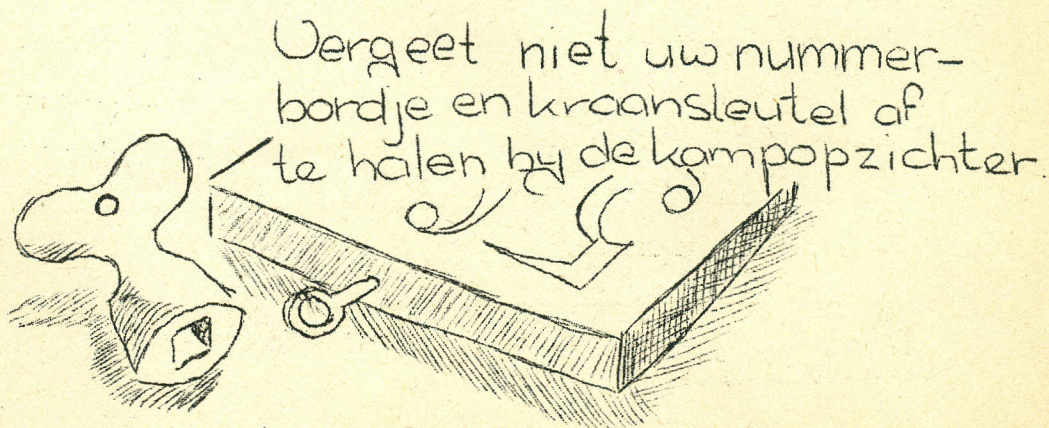 Vergeet niet uw nummer-
bordje en kraansleutel af
te halen by de kampopzichter.